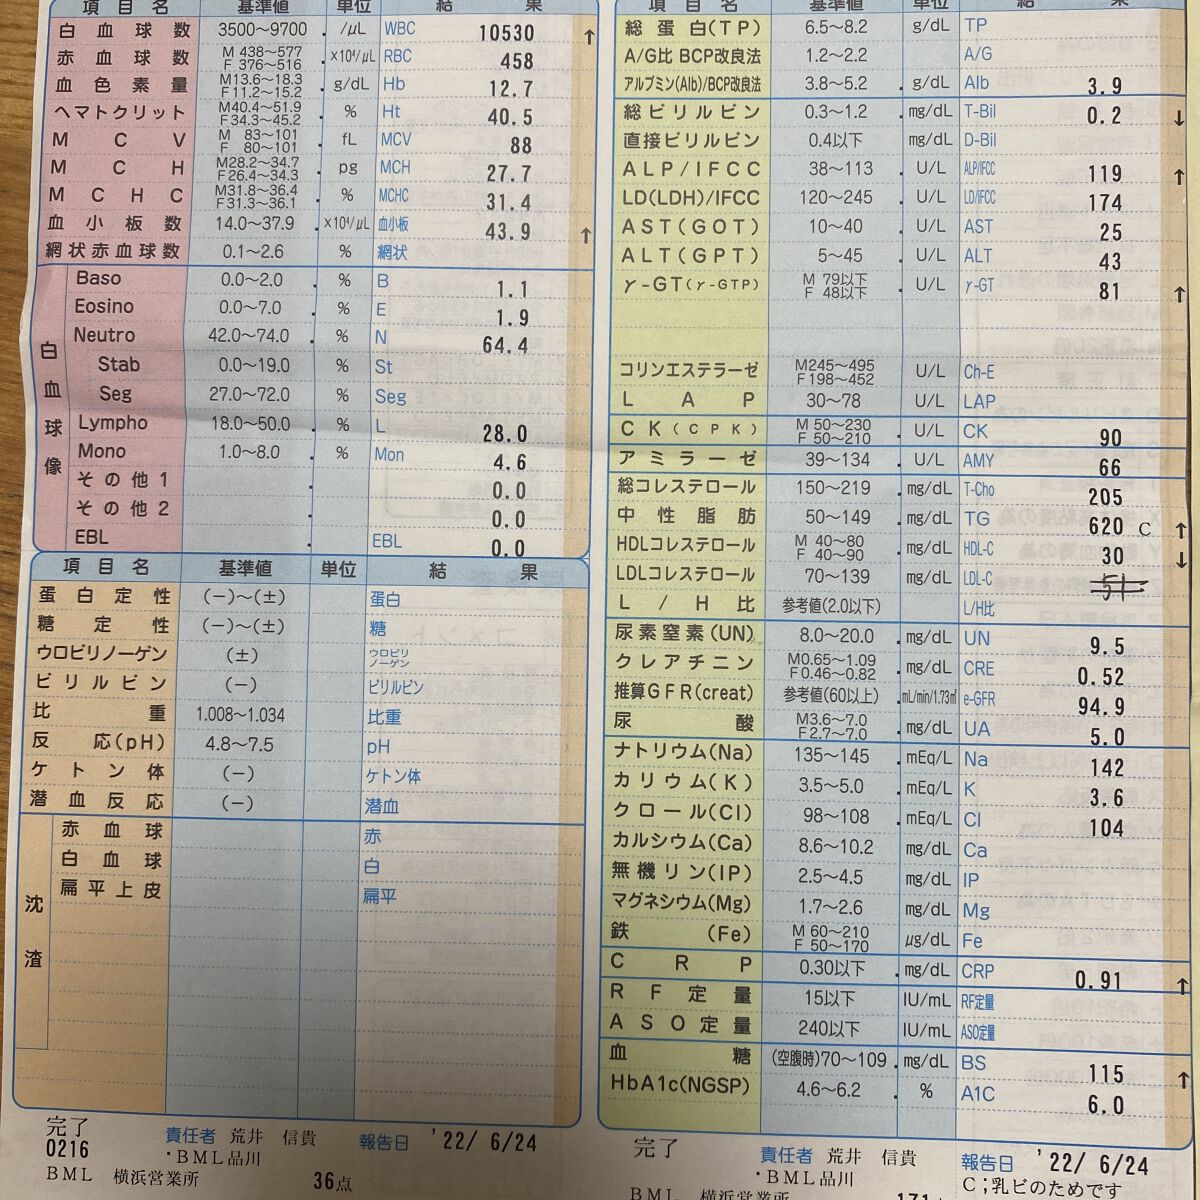 項目名 基準値 単位 結果
白血球数 3500～9700 . /μL WBC 10530 ↑
赤血球数 M 438～577 F 376～516 . ×10⁴/μL RBC 458
血色素量 M13.6～18.3 F11.2～15.2 . g/dL Hb 12.7
ヘマトクリット M40.4～51.9 F34.3～45.2 . % Ht 40.5
MCV M 83～101 F 80～101 . fL MCV 88
MCH M28.2～34.7 F26.4～34.3 . pg MCH 27.7
MCHC M31.8～36.4 F31.3～36.1 . % MCHC 31.4
血小板数 14.0～37.9 . ×10⁴/μL 血小板 43.9 ↑
網状赤血球数 0.1～2.6 % 網状
白血球像
Baso 0.0～2.0 . % B 1.1
Eosino 0.0～7.0 . % E 1.9
Neutro 42.0～74.0 . % N 64.4
Stab 0.0～19.0 . % St
Seg 27.0～72.0 . % Seg
Lympho 18.0～50.0 . % L 28.0
Mono 1.0～8.0 . % Mon 4.6
その他1 . 0.0
その他2 . 0.0
EBL . EBL 0.0
項目名 基準値 単位 結果
蛋白定性 (−)～(±) 蛋白
糖定性 (−)～(±) 糖
ウロビリノーゲン (±) ウロビリノーゲン
ビリルビン (−) ビリルビン
比重 1.008～1.034 比重
反応(pH) 4.8～7.5 pH
ケトン体 (−) ケトン体
潜血反応 (−) 潜血
沈渣
赤血球 赤
白血球 白
扁平上皮 扁平
完了
0216
責任者 荒井 信貴
・BML品川
報告日 '22/ 6/24
BML 横浜営業所 36点
項目名 基準値 単位 結果
総蛋白(TP) 6.5～8.2 g/dL TP
A/G比 BCP改良法 1.2～2.2 A/G
アルブミン(Alb)/BCP改良法 3.8～5.2 . g/dL Alb 3.9
総ビリルビン 0.3～1.2 . mg/dL T-Bil 0.2 ↓
直接ビリルビン 0.4以下 mg/dL D-Bil
ALP/IFCC 38～113 . U/L ALP/IFCC 119 ↑
LD(LDH)/IFCC 120～245 . U/L LD/IFCC 174
AST(GOT) 10～40 . U/L AST 25
ALT(GPT) 5～45 . U/L ALT 43
γ-GT(γ-GTP) M 79以下 F 48以下 . U/L γ-GT 81 ↑
コリンエステラーゼ M245～495 F198～452 U/L Ch-E
LAP 30～78 U/L LAP
CK(CPK) M 50～230 F 50～210 . U/L CK 90
アミラーゼ 39～134 . U/L AMY 66
総コレステロール 150～219 . mg/dL T-Cho 205
中性脂肪 50～149 . mg/dL TG 620 C ↑
HDLコレステロール M 40～80 F 40～90 . mg/dL HDL-C 30 ↓
LDLコレステロール 70～139 mg/dL LDL-C 51
L/H比 参考値(2.0以下) L/H比
尿素窒素(UN) 8.0～20.0 . mg/dL UN 9.5
クレアチニン M0.65～1.09 F0.46～0.82 . mg/dL CRE 0.52
推算GFR(creat) 参考値(60以上) . mL/min/1.73㎡ e-GFR 94.9
尿酸 M3.6～7.0 F2.7～7.0 . mg/dL UA 5.0
ナトリウム(Na) 135～145 . mEq/L Na 142
カリウム(K) 3.5～5.0 . mEq/L K 3.6
クロール(Cl) 98～108 . mEq/L Cl 104
カルシウム(Ca) 8.6～10.2 mg/dL Ca
無機リン(IP) 2.5～4.5 mg/dL IP
マグネシウム(Mg) 1.7～2.6 mg/dL Mg
鉄(Fe) M 60～210 F 50～170 μg/dL Fe
CRP 0.30以下 . mg/dL CRP 0.91 ↑
RF定量 15以下 IU/mL RF定量
ASO定量 240以下 IU/mL ASO定量
血糖 (空腹時)70～109 . mg/dL BS 115 ↑
HbA1c(NGSP) 4.6～6.2 . % A1C 6.0
完了
責任者 荒井 信貴
・BML品川
報告日 '22/ 6/24
C;乳ビのためです
BML 横浜営業所